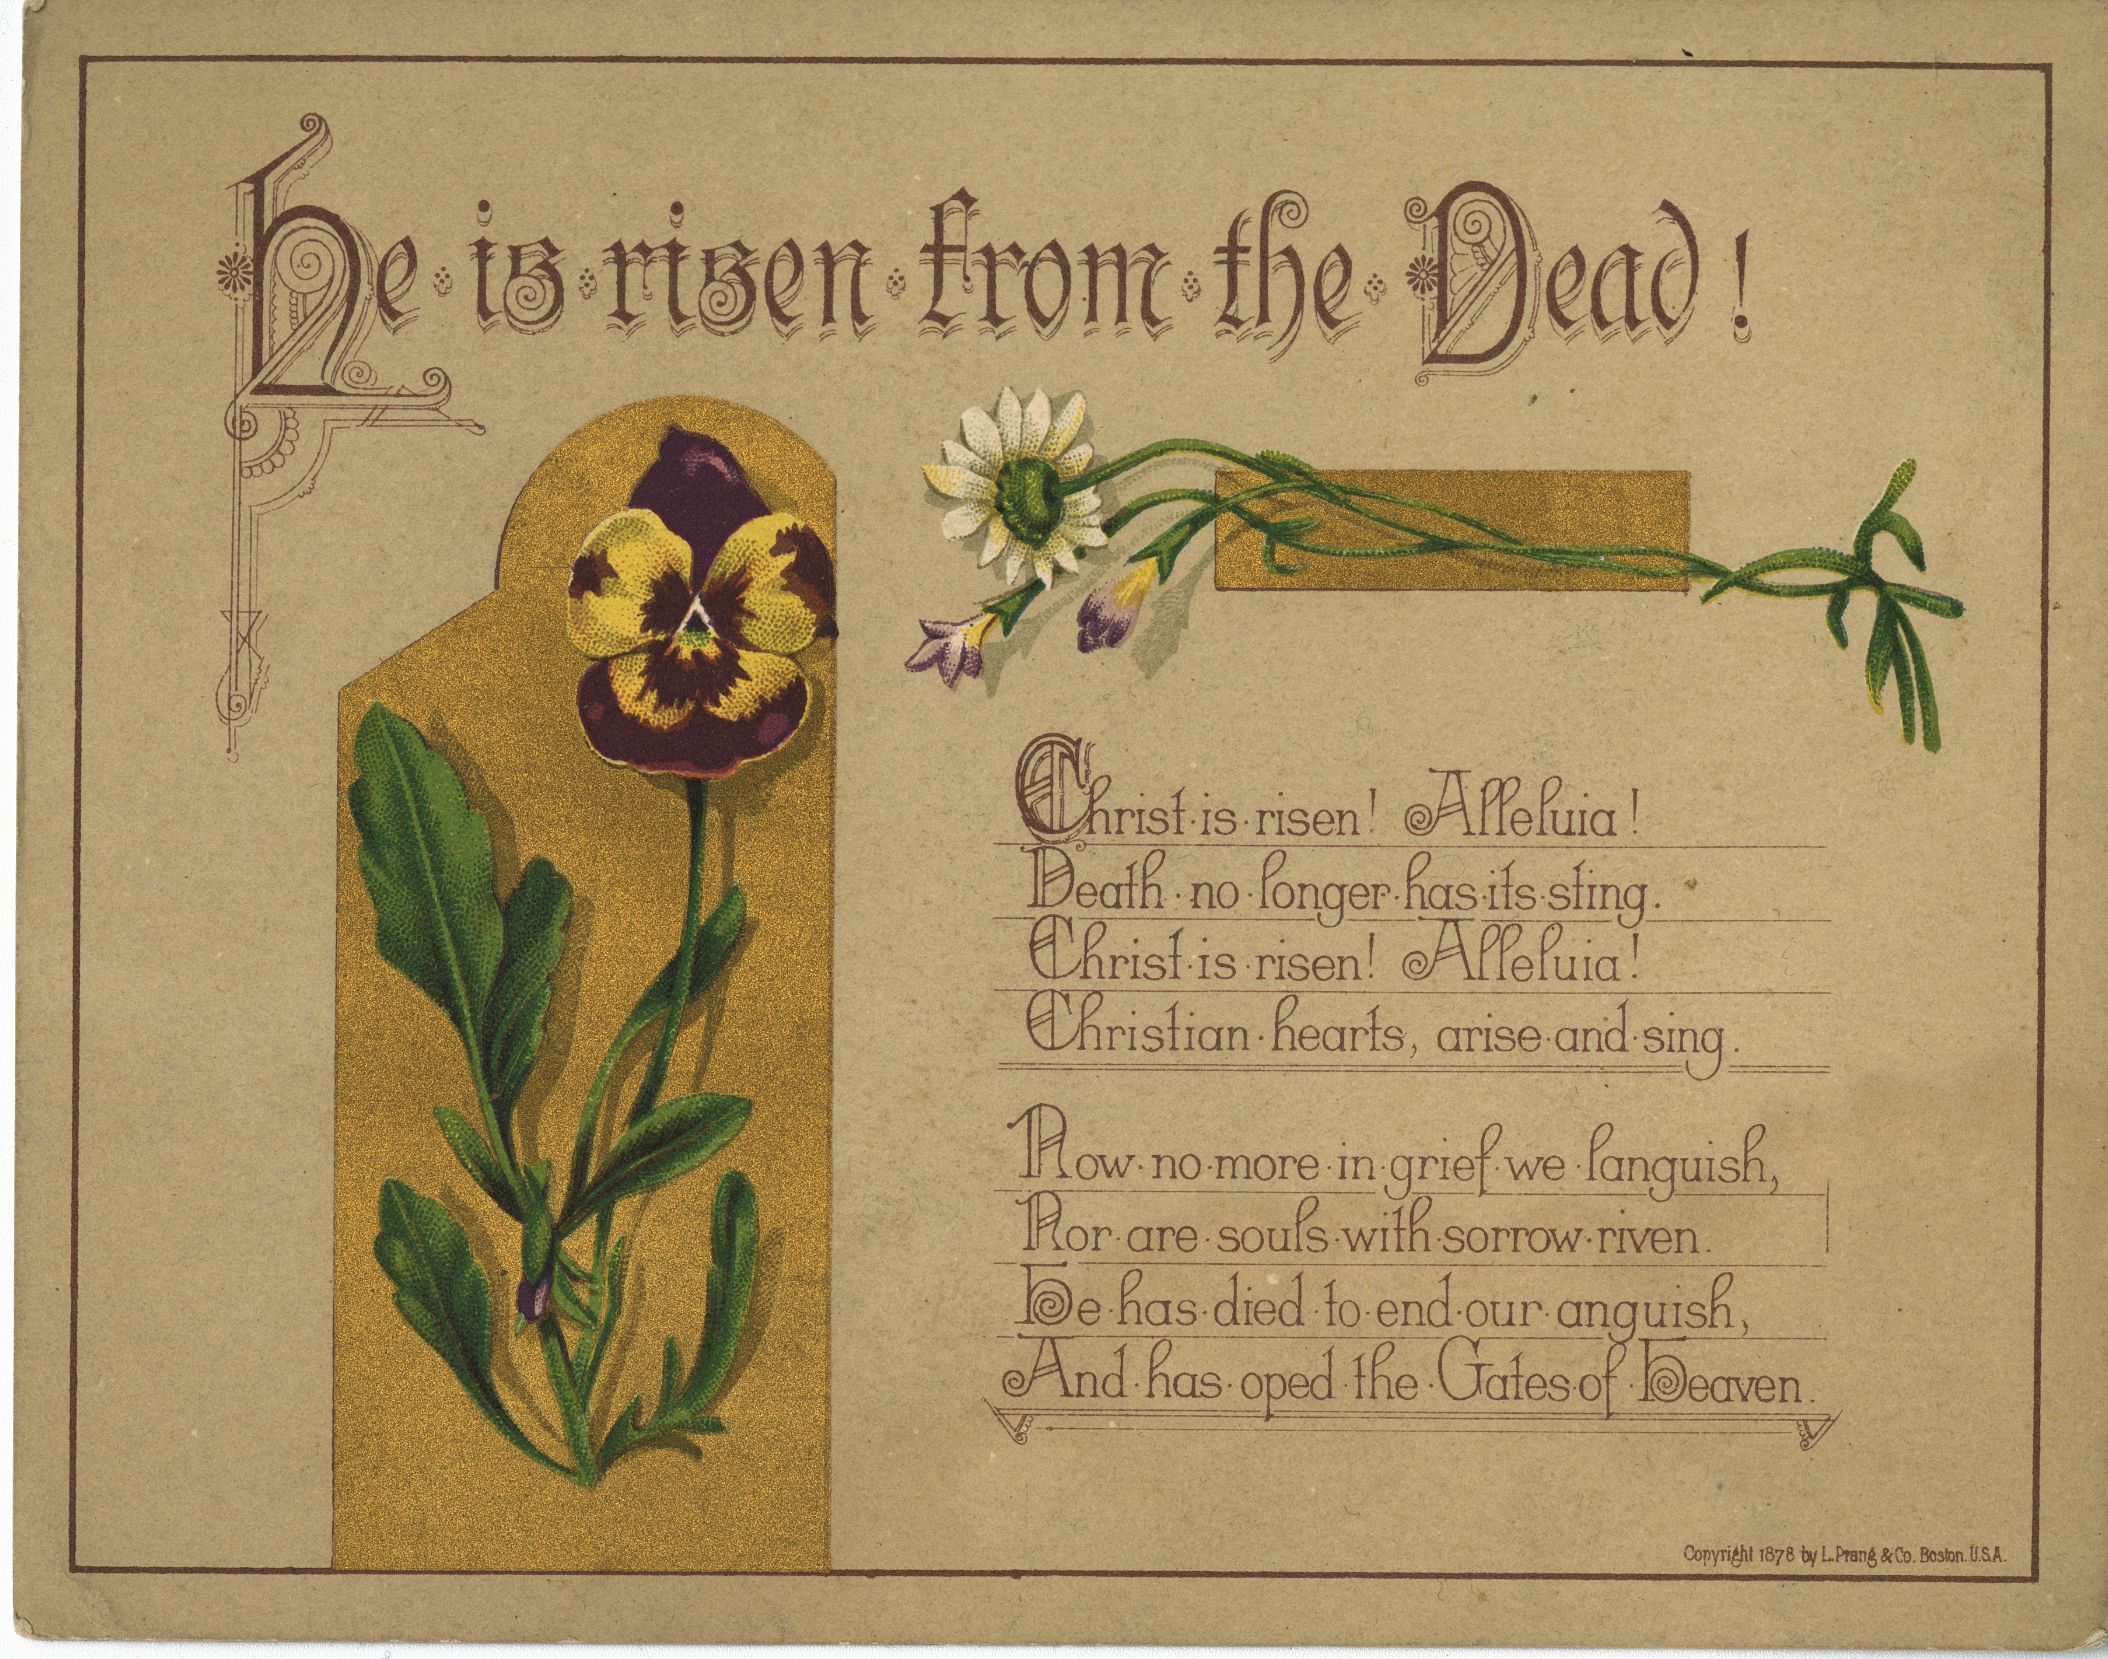 He is risen from the Dead!
Christ is risen! Alleluia!
Death no longer has its sting.
Christ is risen! Alleluia!
Christian hearts, arise and sing.
Now no more in grief we languish,
Nor are souls with sorrow riven.
He has died to end our anguish,
And has oped the Gates of Heaven.
Copyright 1878 by L. Prang & Co. Boston. U.S.A.